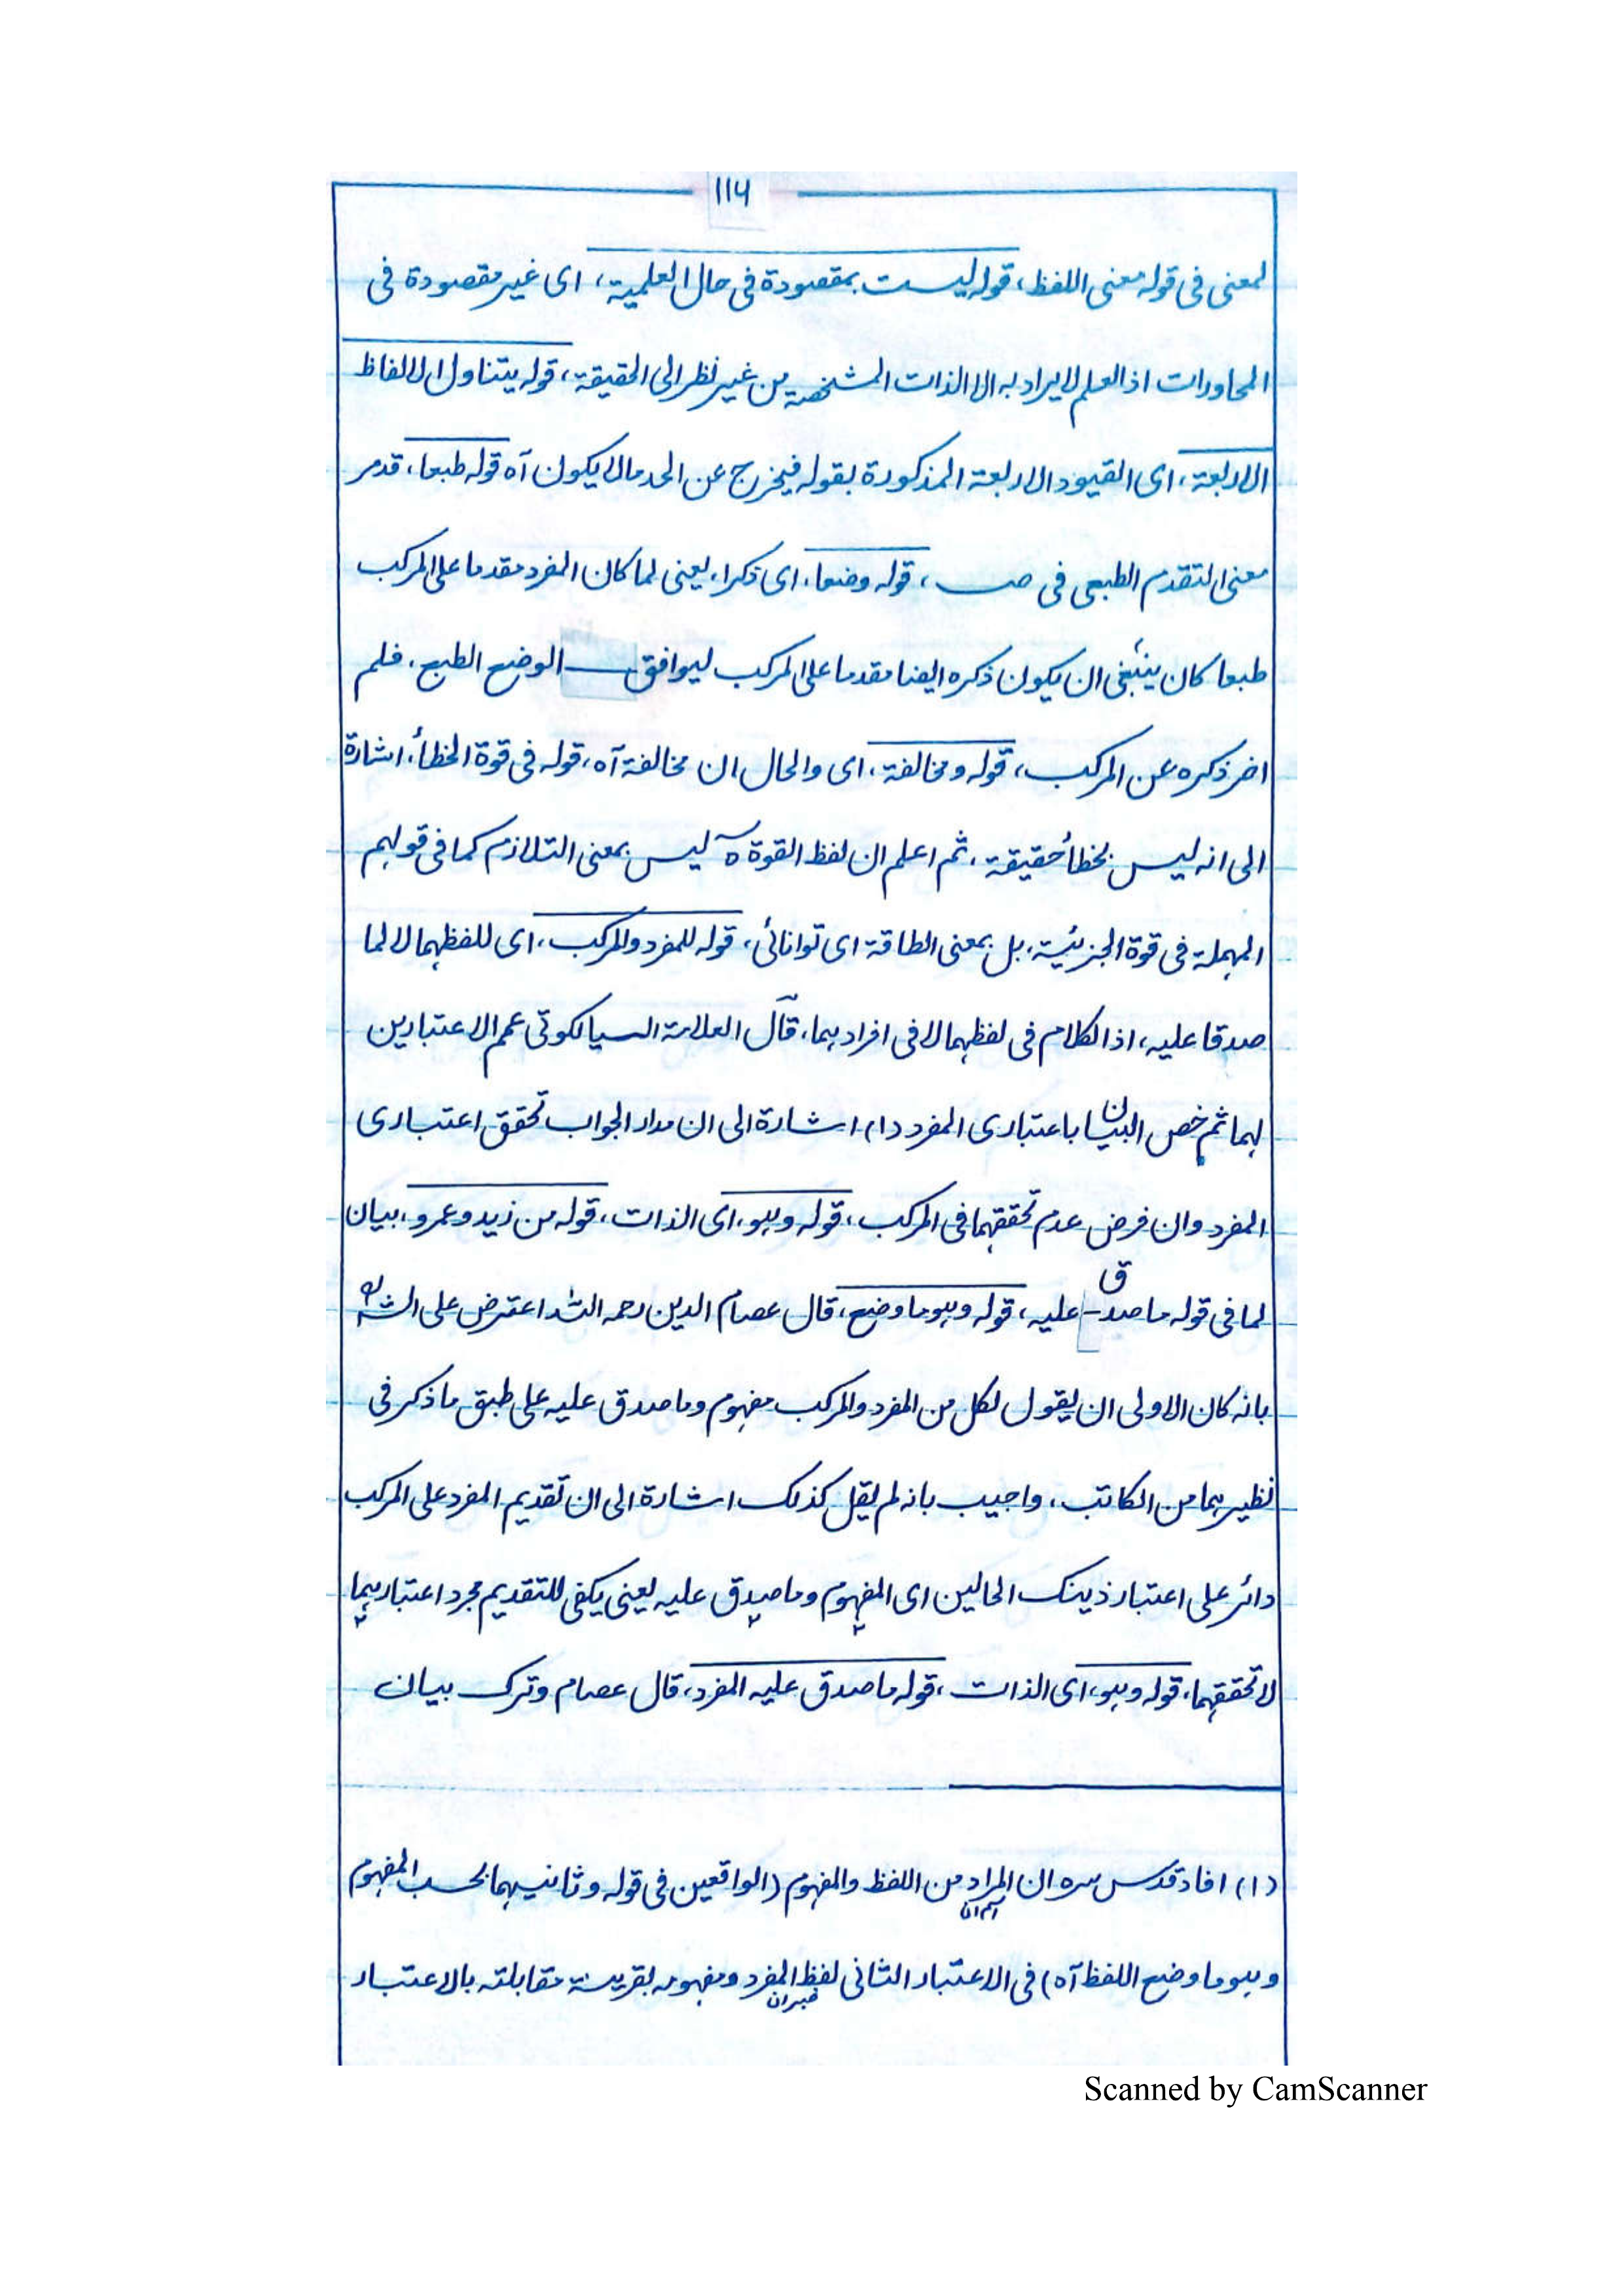 ۱۱۶
لمعنى فى قوله معنى اللفظ، قوله ليست بمقصودة فى حال العلمية، اى غير مقصودة فى
المحاورات اذ العلم لا يراد به الا الذات المشخصة من غير نظر الى الحقيقة، قوله يتناول الالفاظ
الاربعة، اى القيود الاربعة المذكورة بقوله فيخرج عن الحد مالا يكون آه قوله طبعا، قدمر
معنى التقدم الطبعى فى صــ ، قوله وضعا، اى ذكرا، يعنى لما كان المفرد مقدما على المركب
طبعا كان ينبغى ان يكون ذكره ايضا مقدما على المركب ليوافق الوضع الطبع، فلم
اخر ذكره عن المركب، قوله ومخالفة، اى والحال ان مخالفة آه، قوله فى قوة الخطأ، اشارة
الى انه ليس بخطأ حقيقة، ثم اعلم ان لفظ القوة ليس بمعنى التلازم كما فى قولهم
المهملة فى قوة الجزئية، بل بمعنى الطاقة اى توانائى، قوله للمفرد والمركب، اى للفظهما لا لما
صدقا عليه، اذ الكلام فى لفظهما لا فى افرادهما، قال العلامة السيالكوتى عمم الاعتبارين
لهما ثم خص البيان باعتبارى المفرد (۱) اشارة الى ان مدار الجواب تحقق اعتبارى
المفرد وان فرض عدم تحققهما فى المركب، قوله وهو، اى الذات، قوله من زيد وعمرو، بيان
لما فى قوله ما صدق عليه، قوله وهو ما وضع، قال عصام الدين رحمه الله اعترض على الشه
بانه كان الاولى ان يقول لكل من المفرد والمركب مفهوم وما صدق عليه على طبق ما ذكر فى
نظيرهما من الكاتب، واجيب بانه لم يقل كذلك اشارة الى ان تقديم المفرد على المركب
دائر على اعتبار ذينك الحالين اى المفهوم وما صدق عليه يعنى يكفى للتقديم مجرد اعتبارهما
لا تحققهما، قوله وهو، اى الذات، قوله ما صدق عليه المفرد، قال عصام وترك بيان
(۱) افاد قدس سره ان المراد من اللفظ والمفهوم (الواقعين فى قوله وثانيهما بحسب المفهوم
اسم ان
وهو ما وضع اللفظ آه) فى الاعتبار الثانى لفظ المفرد ومفهومه بقرينة مقابلته بالاعتبار
خبر ان
Scanned by CamScanner